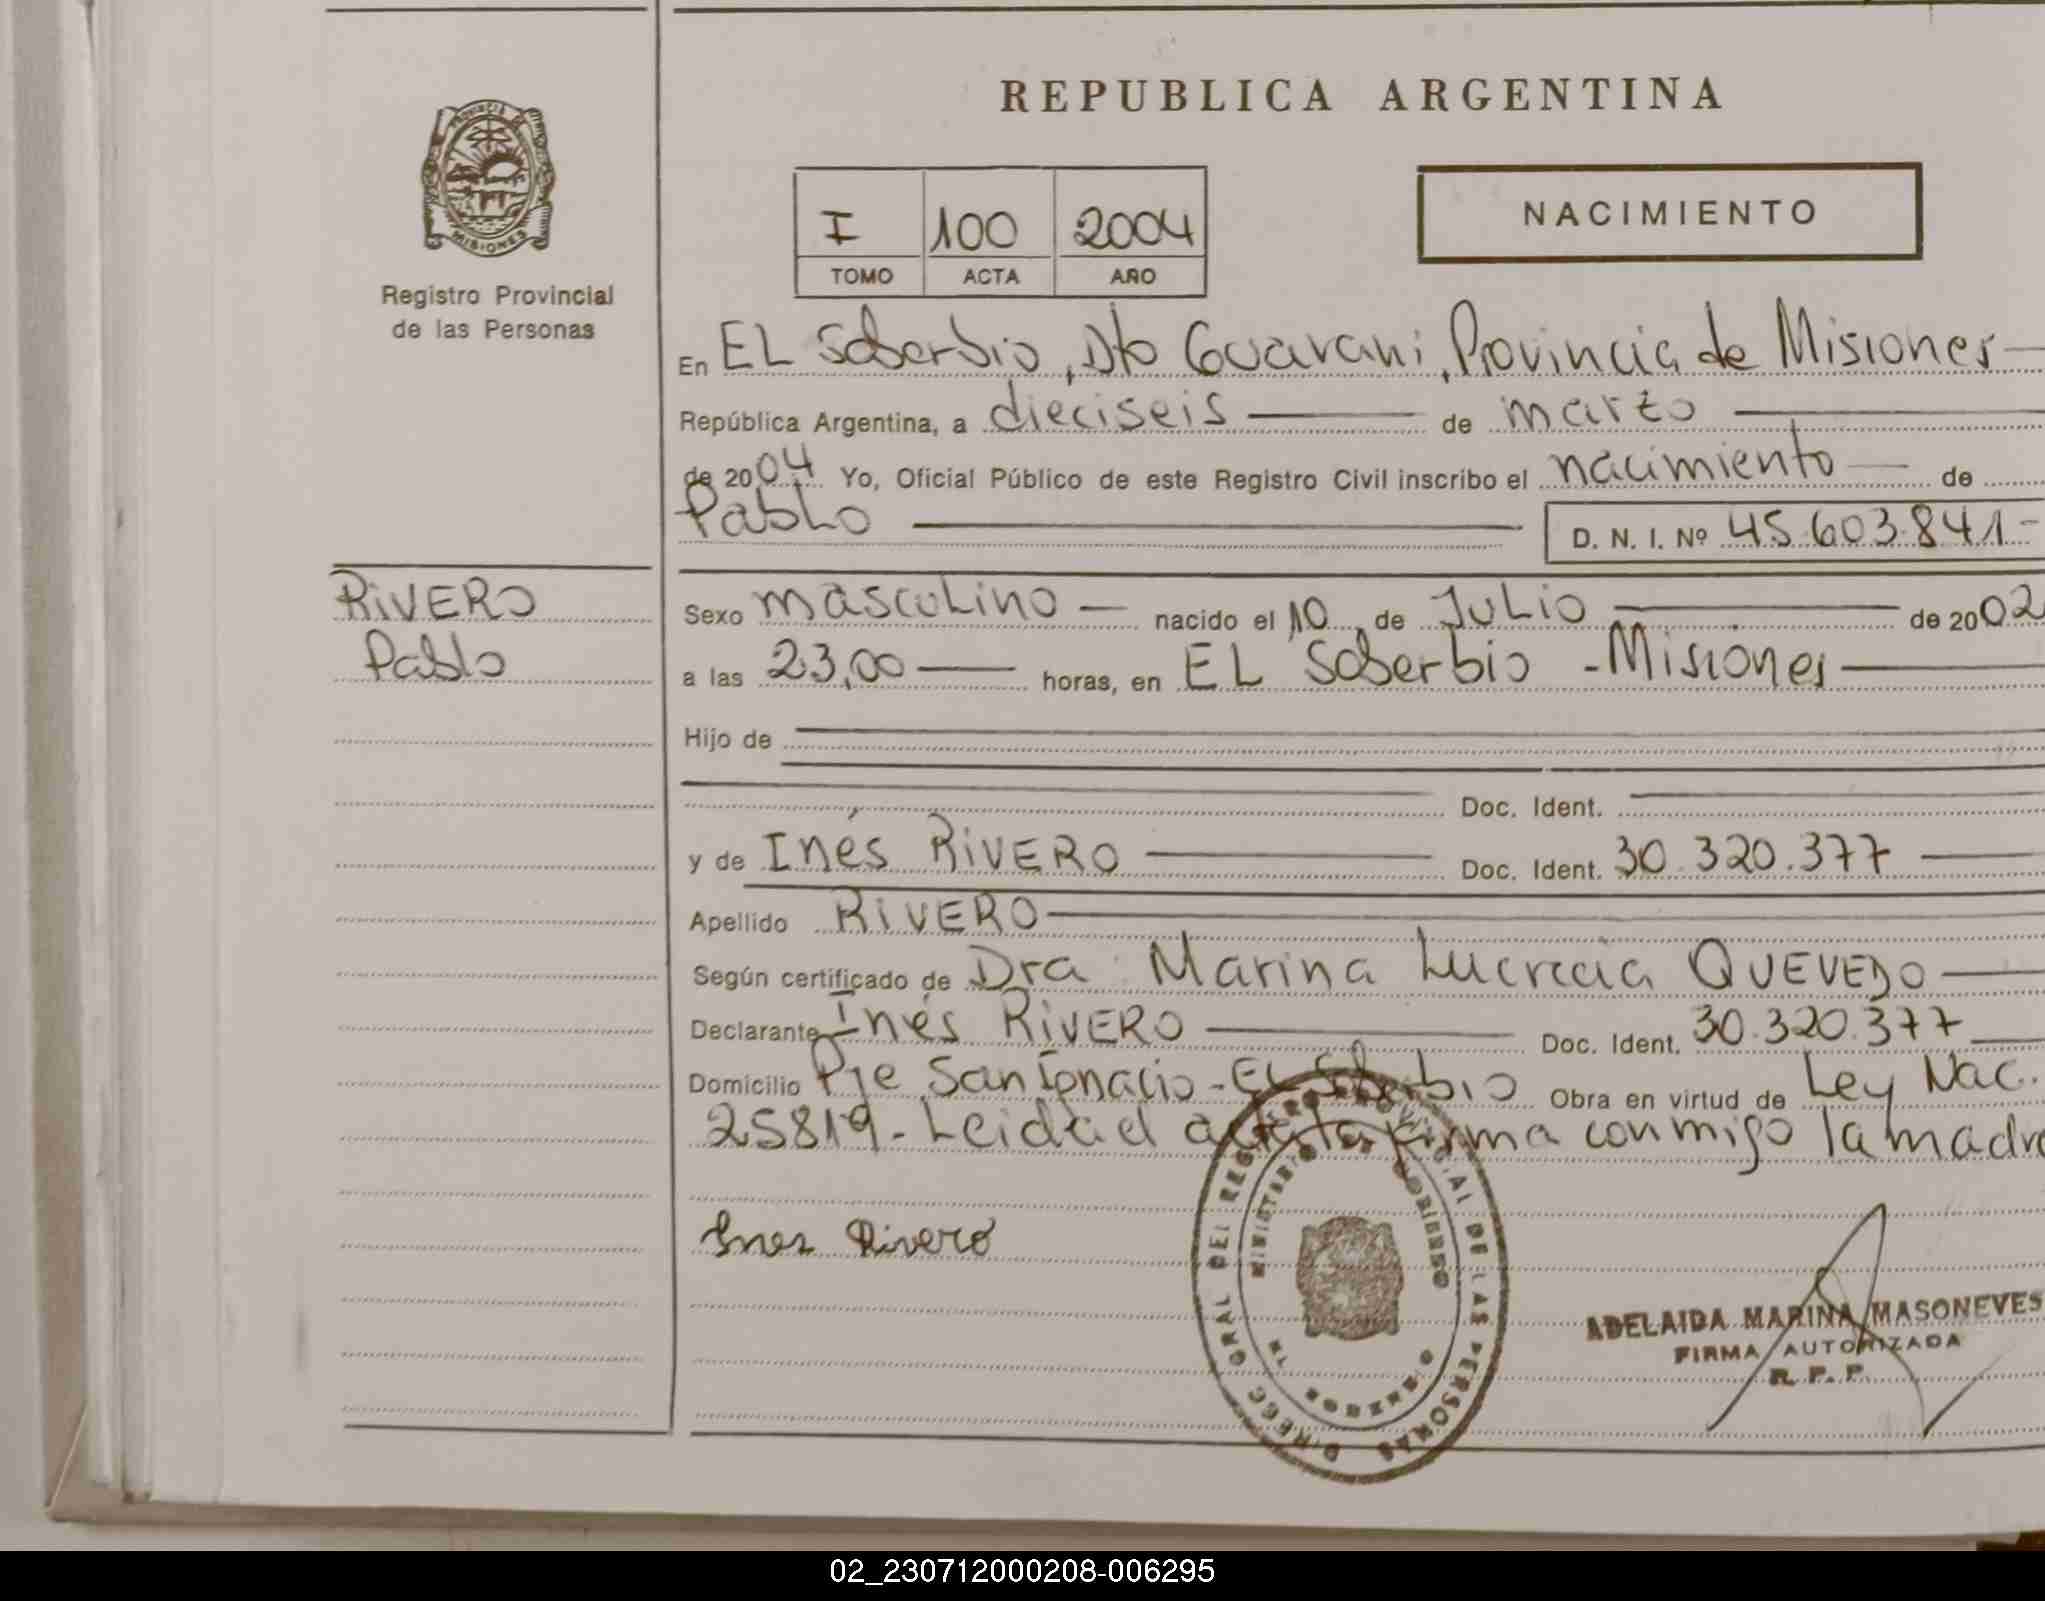 REPUBLICA ARGENTINA
PROVINCIA DE
MISIONES
Registro Provincial
de las Personas
I 100 2004
TOMO ACTA AÑO
NACIMIENTO
En EL Soberbio, Dto Guarani, Provincia de Misiones
República Argentina, a dieciseis de marzo
de 2004 Yo, Oficial Público de este Registro Civil inscribo el nacimiento de
Pablo D. N. I. Nº 45.603.841-
RIVERO
Pablo
Sexo masculino nacido el 10 de Julio de 2002
a las 23,00 horas, en EL Soberbio - Misiones
Hijo de
Doc. Ident.
y de Inés RIVERO Doc. Ident. 30.320.377
Apellido RIVERO
Según certificado de Dra. Marina Lucrecia QUEVEDO
Declarante Inés RIVERO Doc. Ident. 30.320.377
Domicilio Pje San Ignacio - EL Soberbio Obra en virtud de Ley Nac.
25819 - Leida el acta firma conmigo la madre
Ines Rivero
DIRECC GRAL DEL REGISTRO PROVINCIAL DE LAS PERSONAS
MINISTERIO DE GOBIERNO
ADELAIDA MARINA MASONEVES
FIRMA AUTORIZADA
R. P. P.
02_230712000208-006295